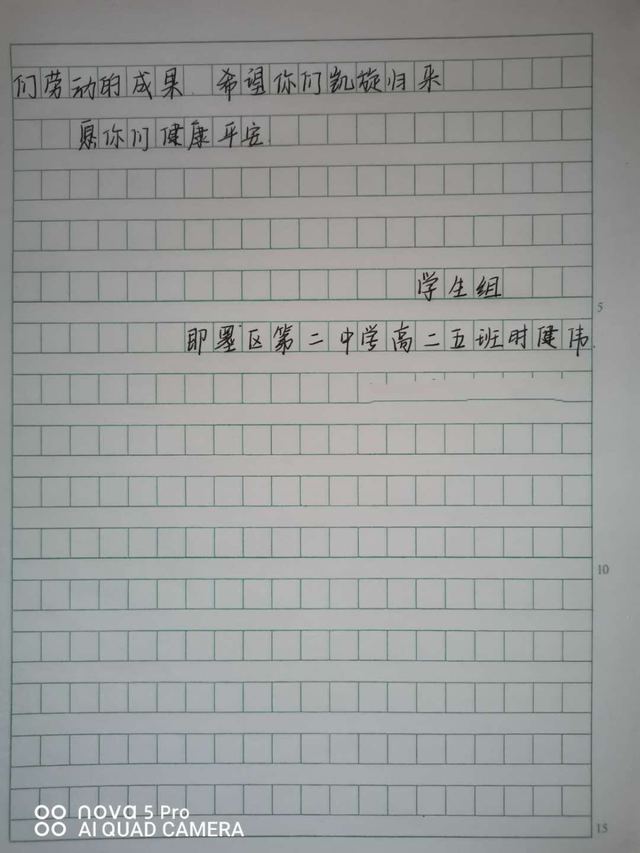 们劳动的成果.希望你们凯旋归来
愿你们健康平安.
学生组
5
即墨区第二中学高二五班时健伟.
10
15
nova 5 Pro
AI QUAD CAMERA